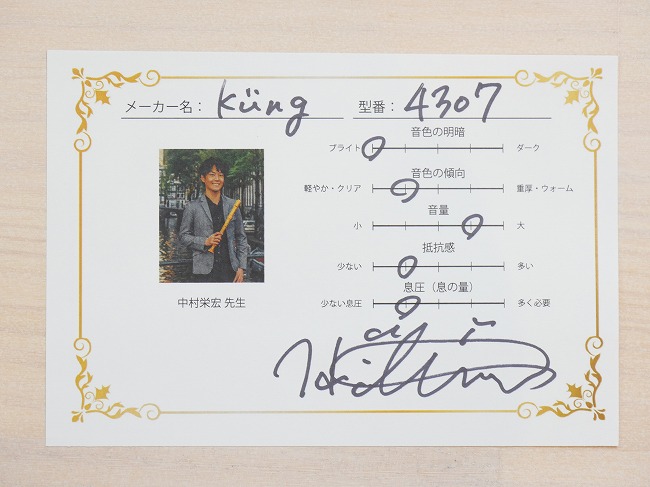 メーカー名： Küng 型番： 4307
音色の明暗
ブライト ダーク
音色の傾向
軽やか・クリア 重厚・ウォーム
音量
小 大
抵抗感
少ない 多い
息圧（息の量）
少ない息圧 多く必要
中村栄宏 先生